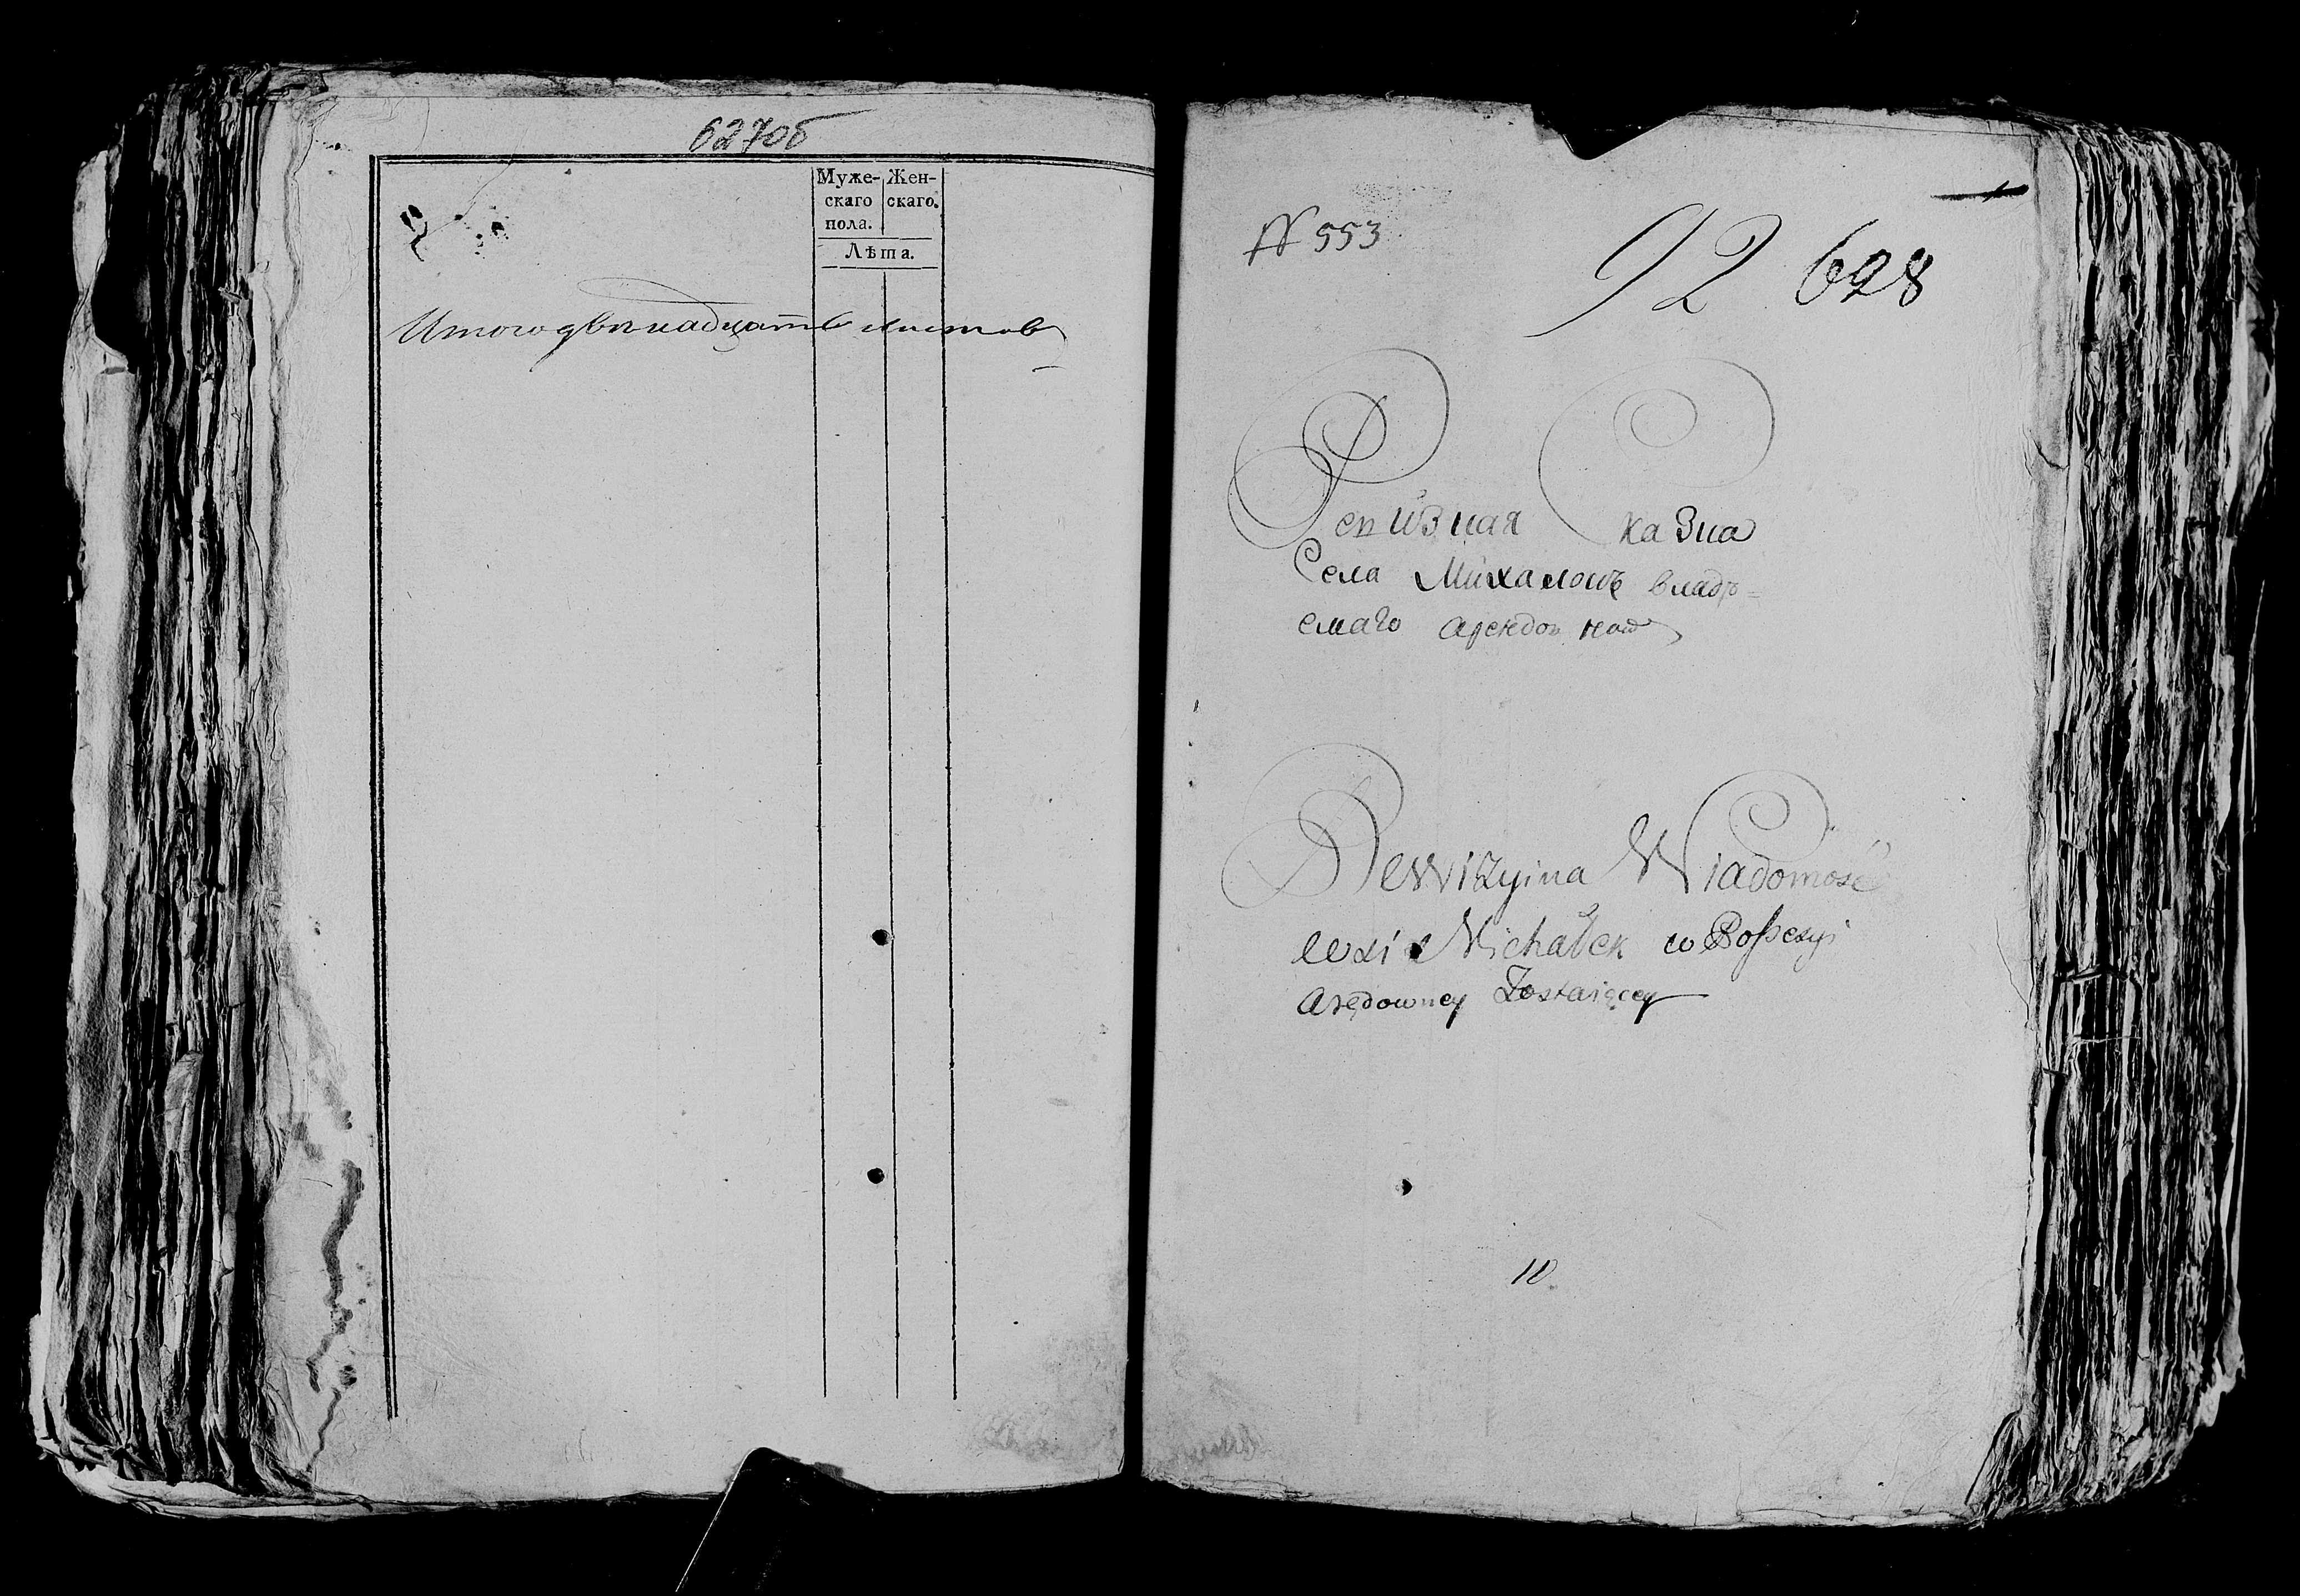 627об
Муже-
скаго
пола.
Жен-
скаго.
Лѣта.
Итого двѣнадцать листов
N 553
92 628
Ревизная Сказка
Села Михалокъ владѣ=
емаго арендов ною
Rewizyina Wiadomość
wsi Michałek w Possesyi
Arędowney Zostaiącey
10